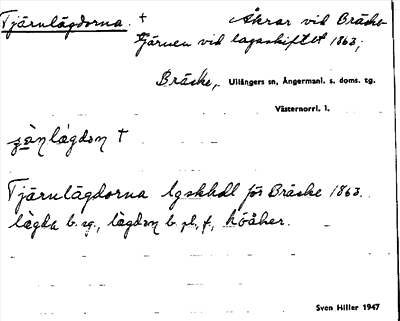 Tjärnlägdorna. † Åkrar vid Bräcke
tjärnen vid lagaskiftet 1863;
Bräcke, Ullångers sn, Ångermanl. s. doms. tg.
Västernorrl. l.
lägdon †
Tjärnlägdorna lgskhdl för Bräcke 1863.
lägda b. sg., lägdon b. pl., f., höåker.
Sven Hiller 1947